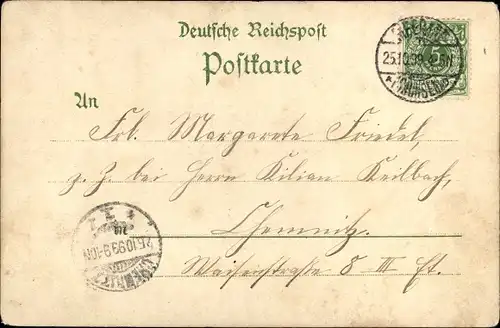 Deutsche Reichspost
Postkarte
An
Frl. Margarete Friedel,
z. Z. bei Herrn Kilian Keilbach,
Chemnitz.
Waisenstraße 8 III Et.
25.10.99
(SACHSEN)
5
25.10.99.8-10N
CHEMNITZ